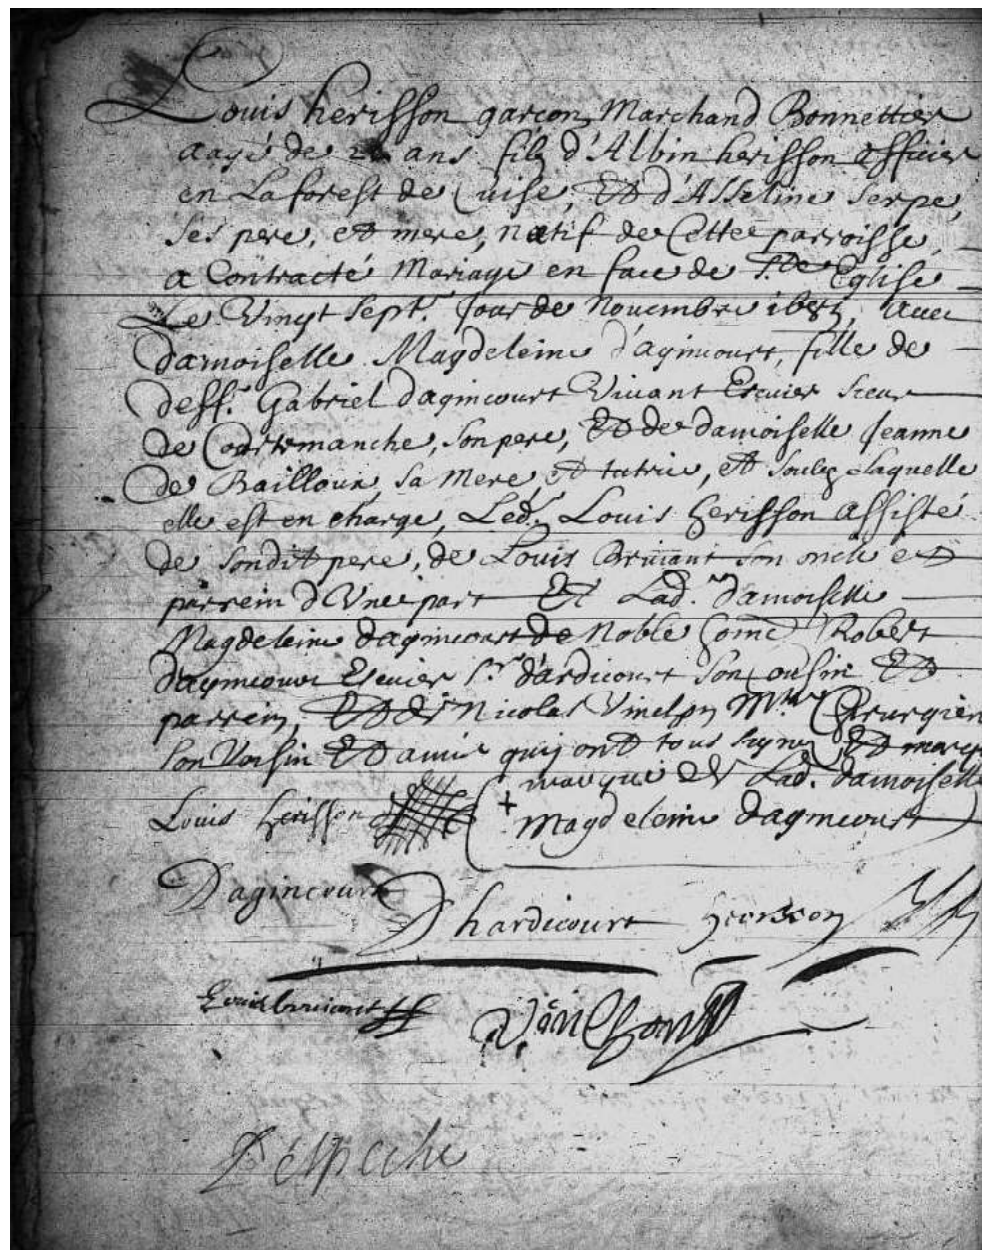 Louis herisson garcon, Marchand Bonnettier
aagé de ans, filz d'Albin herisson officier
en La forest de Cuise, Et d'Asseline Serpe,
ses pere, et mere, natif de Cette parroisse,
a Contracté Mariage en face de Ste Eglise
Le Vingt Sept.e Jour de Novembre, avec
damoiselle Magdeleine d'agincourt, fille de
deff.t Gabriel dagincourt Vivant Escuier Sieur
de Courtemanche, son pere, Et de damoiselle Jeanne
de, sa Mere, et tutrice, et soulz Laquelle
elle est en charge, Led. Louis herisson Assisté
de sondit pere, de Louis Bruiant son oncle et
parrein d'Une part Et Lad. damoiselle
Magdeleine dagincourt de Noble home Robert
dagincourt Escuier S.r d'ardicourt son Cousin Et
parrein, Et de Nicolas M.tre Chirurgien
son Voisin Et amis quj ont tous signez, Et
marque de Lad. damoiselle
Louis herisson + Magdeleine dagincourt
Dagincourt
Dhardicourt herisson
Louis bruiant
Despeche